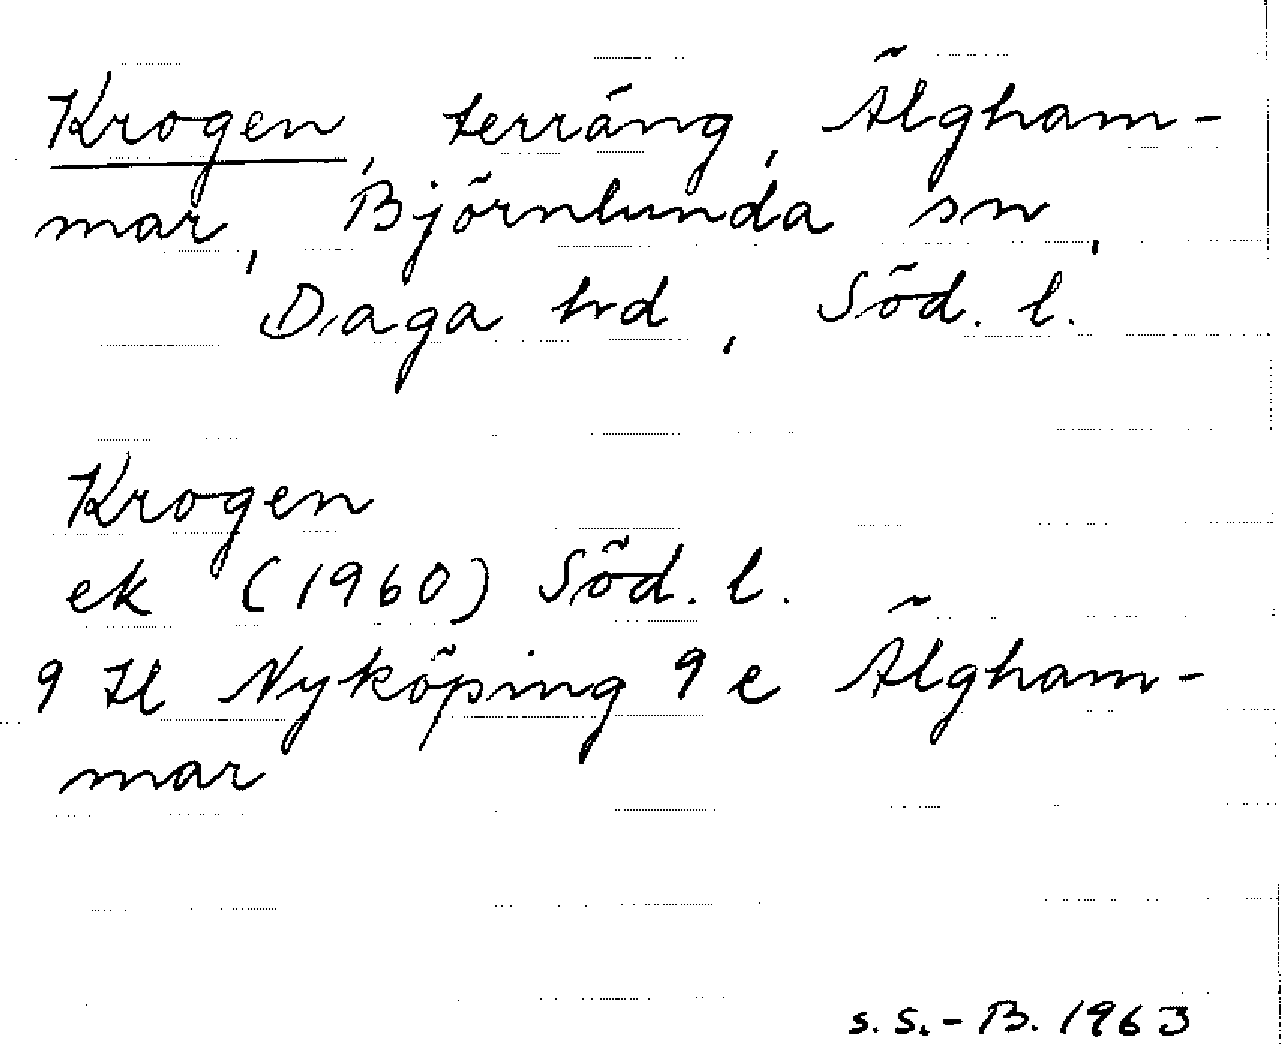 Krogen, terräng, Älgham-
mar, Björnlunda sn,
Daga hd, Söd. l.
Krogen
ek (1960) Söd. l.
9 H Nyköping 9 e Älgham-
mar
s. S.-B. 1963